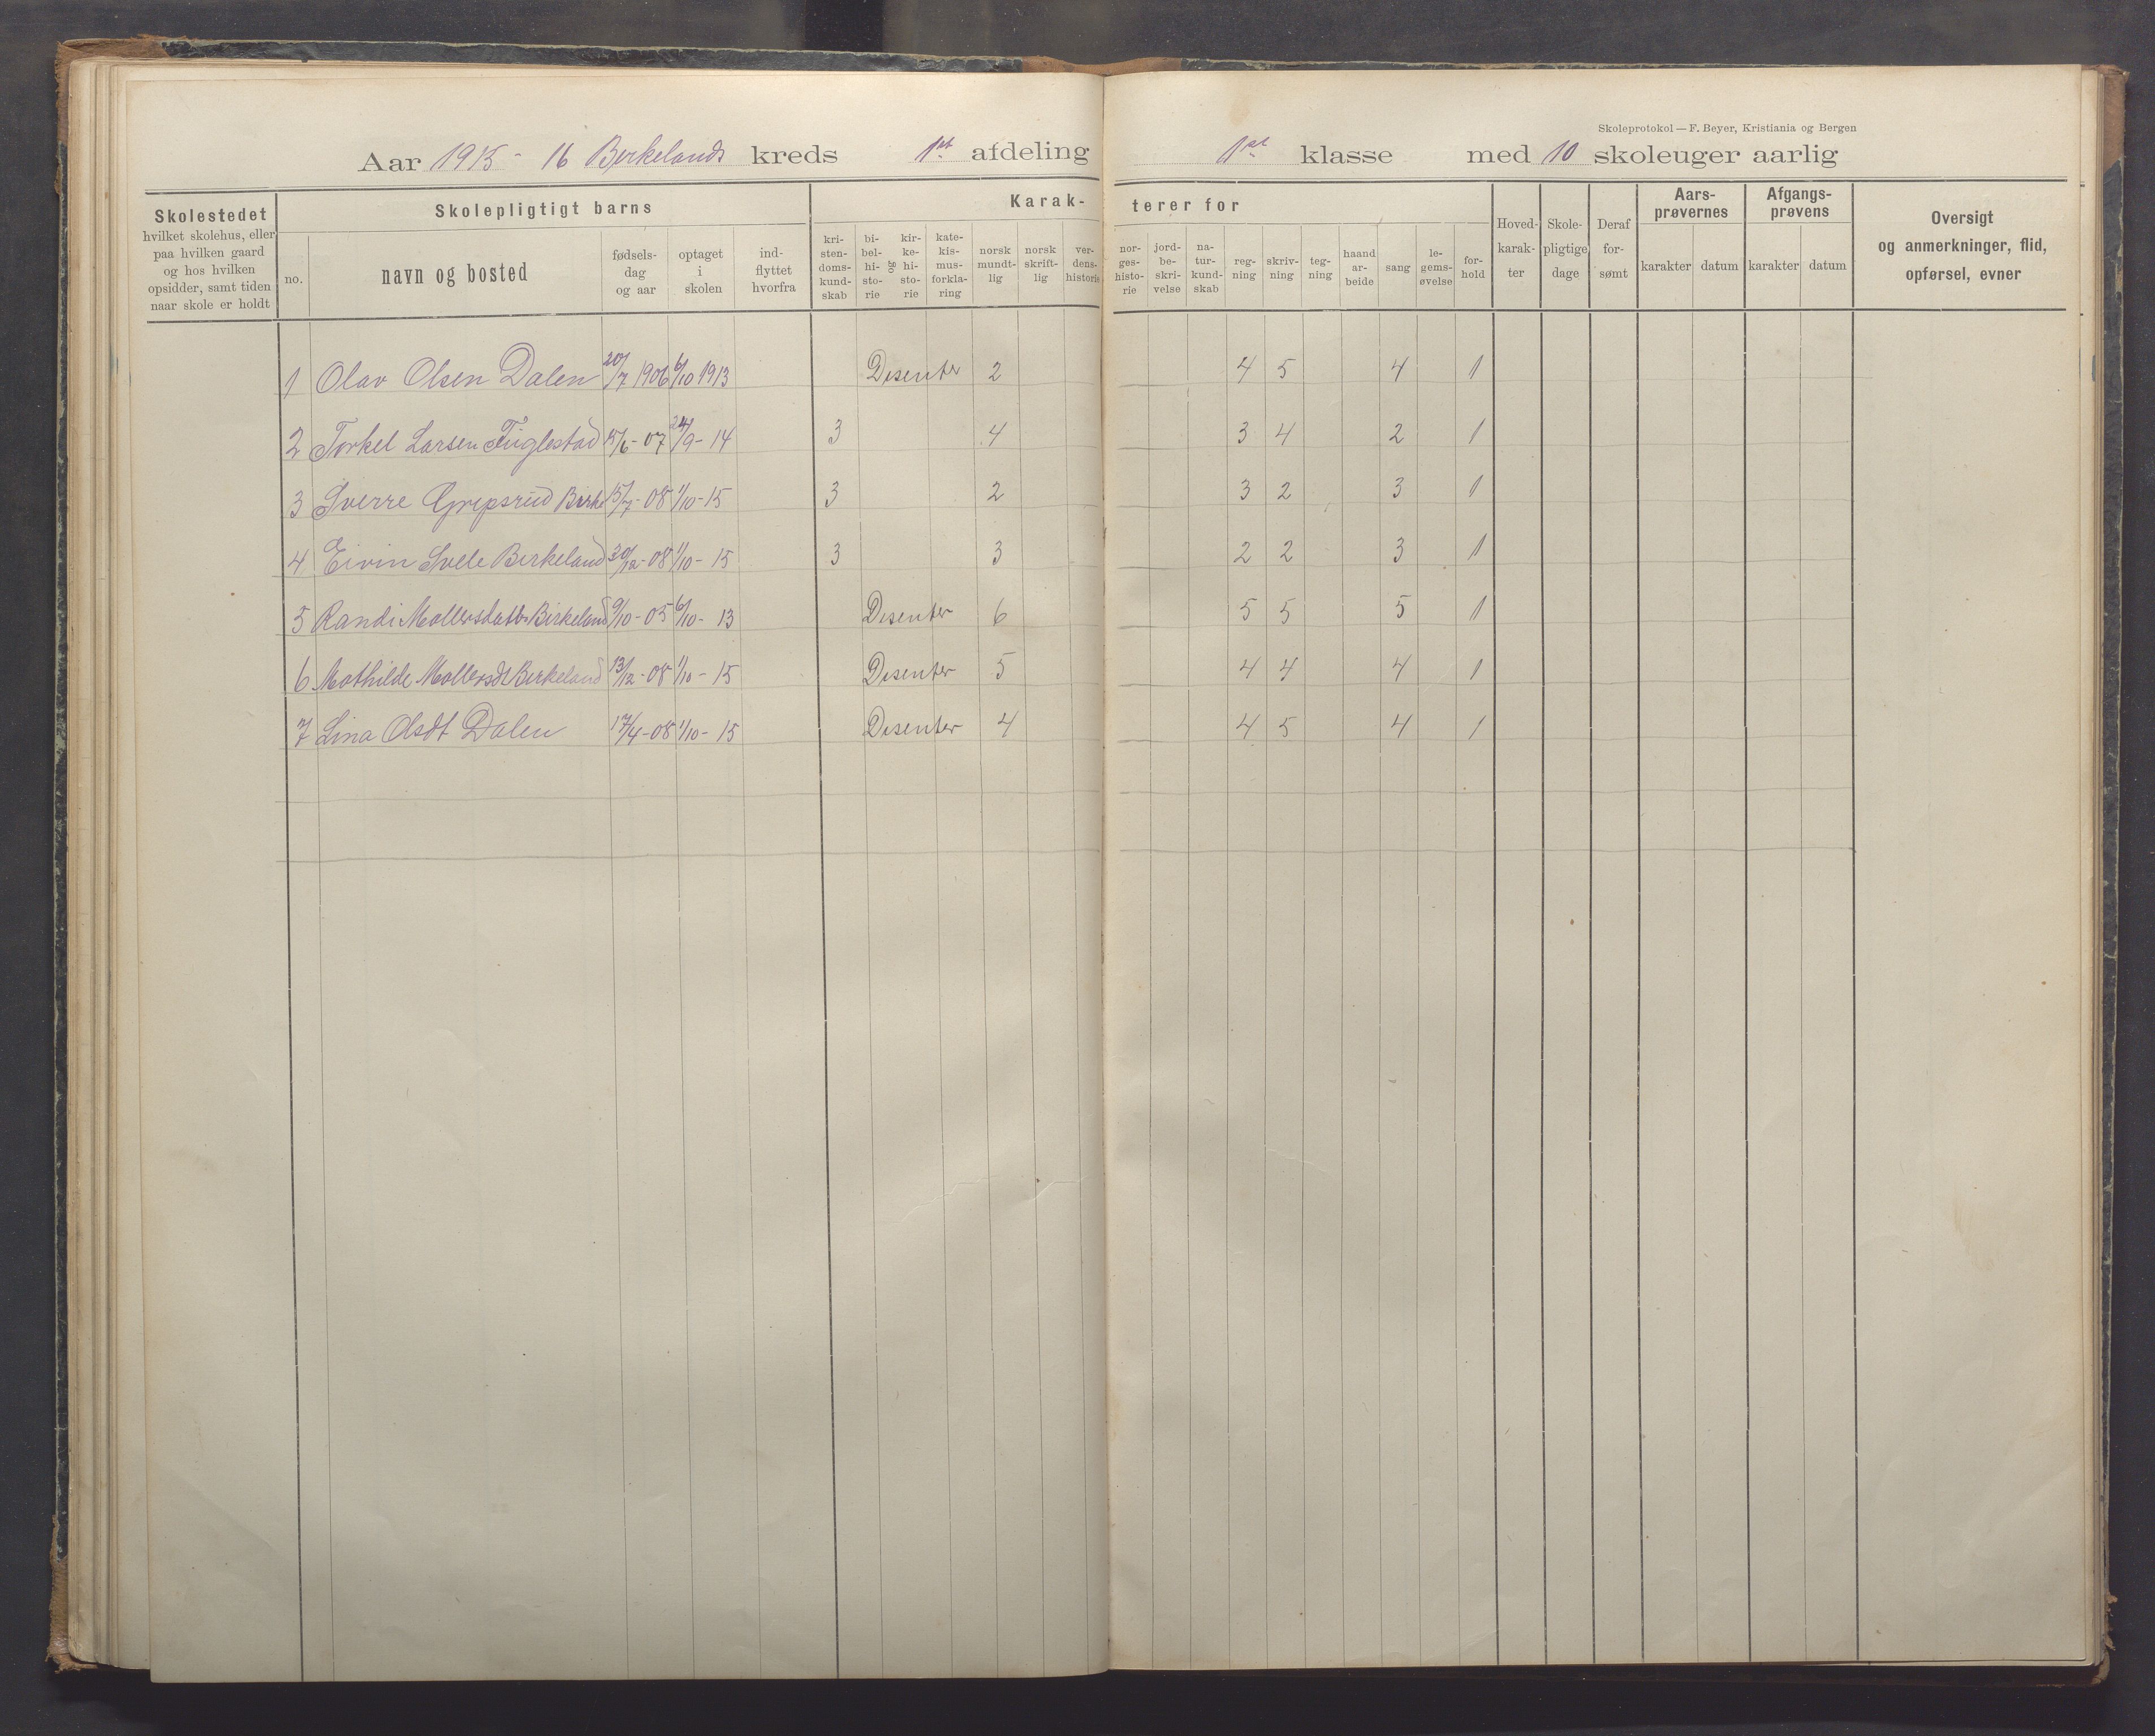 Skoleprotokol — F. Beyer, Kristiania og Bergen
Aar 1915 - 16 Birkelands kreds 1st afdeling 1st klasse med 10 skoleuger aarlig
Skolestedet
hvilket skolehus, eller
paa hvilken gaard
og hos hvilken
opsidder, samt tiden
naar skole er holdt
Skolepligtigt barns
no.
navn og bosted
fødsels-
dag
og aar
optaget
i
skolen
ind-
flyttet
hvorfra
Karak-
terer for
kri-
sten-
doms-
kund-
skab
bi-
bel-
hi-
sto-
rie
og
kir-
ke-
hi-
sto-
rie
kate-
kis-
mus-
forkla-
ring
norsk
mundt-
lig
norsk
skrift-
lig
ver-
dens-
historie
nor-
ges-
histo-
rie
jord-
be-
skri-
velse
na-
tur-
kund-
skab
reg-
ning
skriv-
ning
teg-
ning
haand
ar-
beide
sang
le-
gems-
øvelse
for-
hold
Hoved-
karak-
ter
Skole-
pligtige
dage
Deraf
for-
sømt
Aars-
prøvernes
karakter datum
Afgangs-
prøvens
karakter datum
Oversigt
og anmerkninger, flid,
opførsel, evner
1 Olav Olsen Dalen 20/7 1906 6/10 1913 Disenter 2 4 5 4 1
2 Torkel Larsen Fuglestad 15/6 - 07 24/9 - 14 3 4 3 4 2 1
3 Sverre Gripsrud Birke 15/7 - 08 1/10 - 15 3 2 3 2 3 1
4 Eivin Svele Birkeland 30/12 - 08 1/10 - 15 3 3 2 2 3 1
5 Randi Mollersdatter Birkeland 9/10 - 05 6/10 - 13 Disenter 6 5 5 5 1
6 Mathilde Mollersdt Birkeland 13/12 - 08 1/10 - 15 Disenter 5 4 4 4 1
7 Lina Olsdt Dalen 17/4 - 08 1/10 - 15 Disenter 4 4 5 4 1